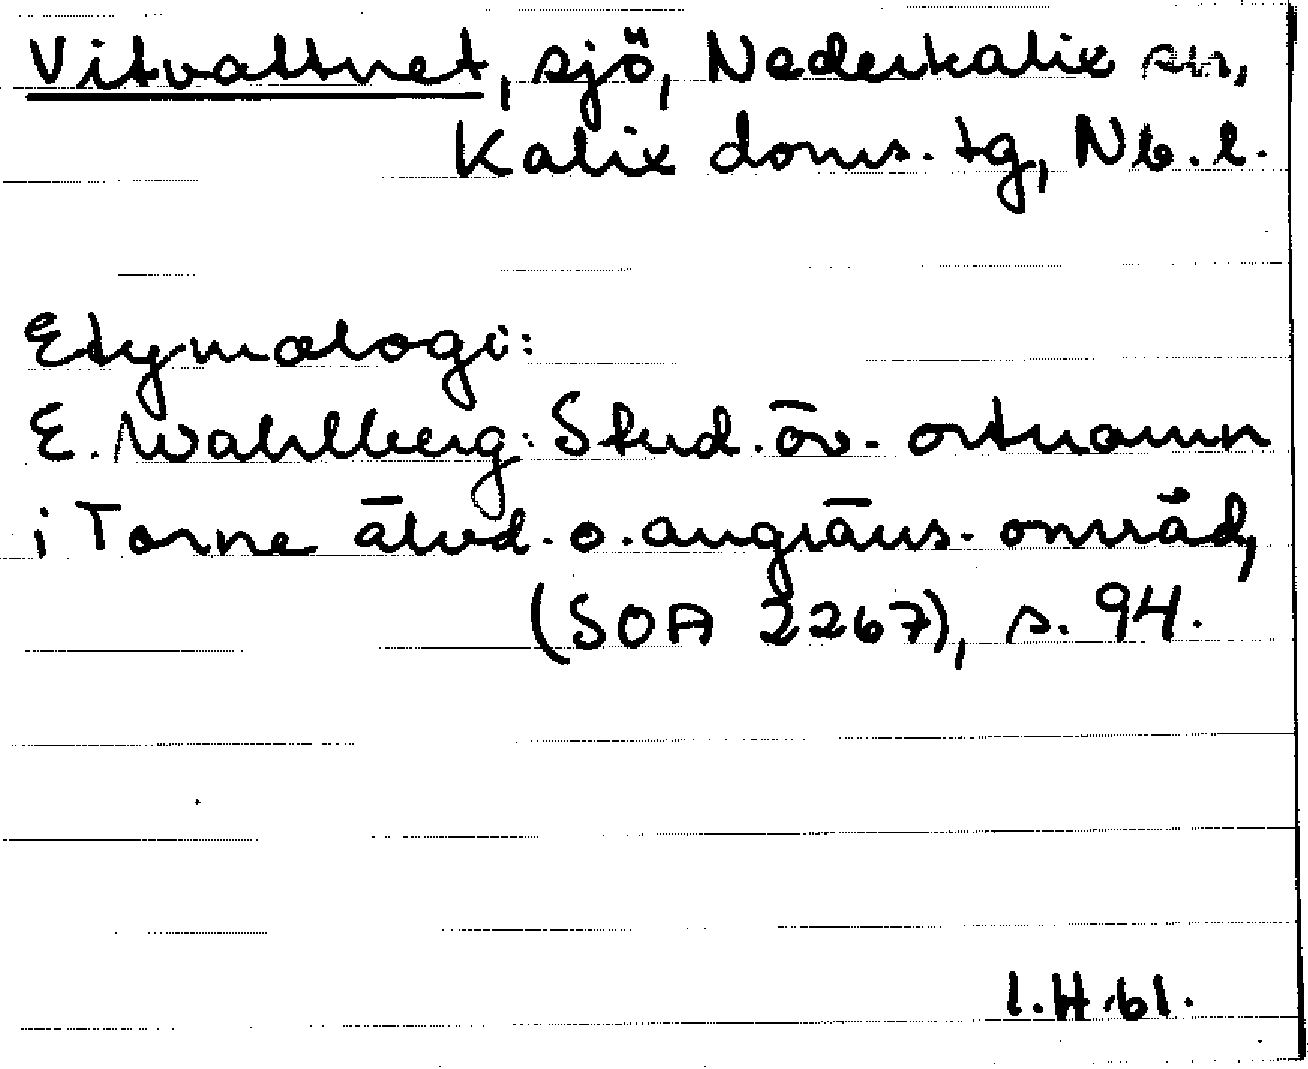 Vitvattnet, sjö, Nederkalix sn,
Kalix doms. tg, Nb. l.
Etymologi:
E. Wahlberg: Stud. öv. ortnamn
i Torne älvd. o. angräns. områd,
(SOA 2267), s. 94.
I.H.61.